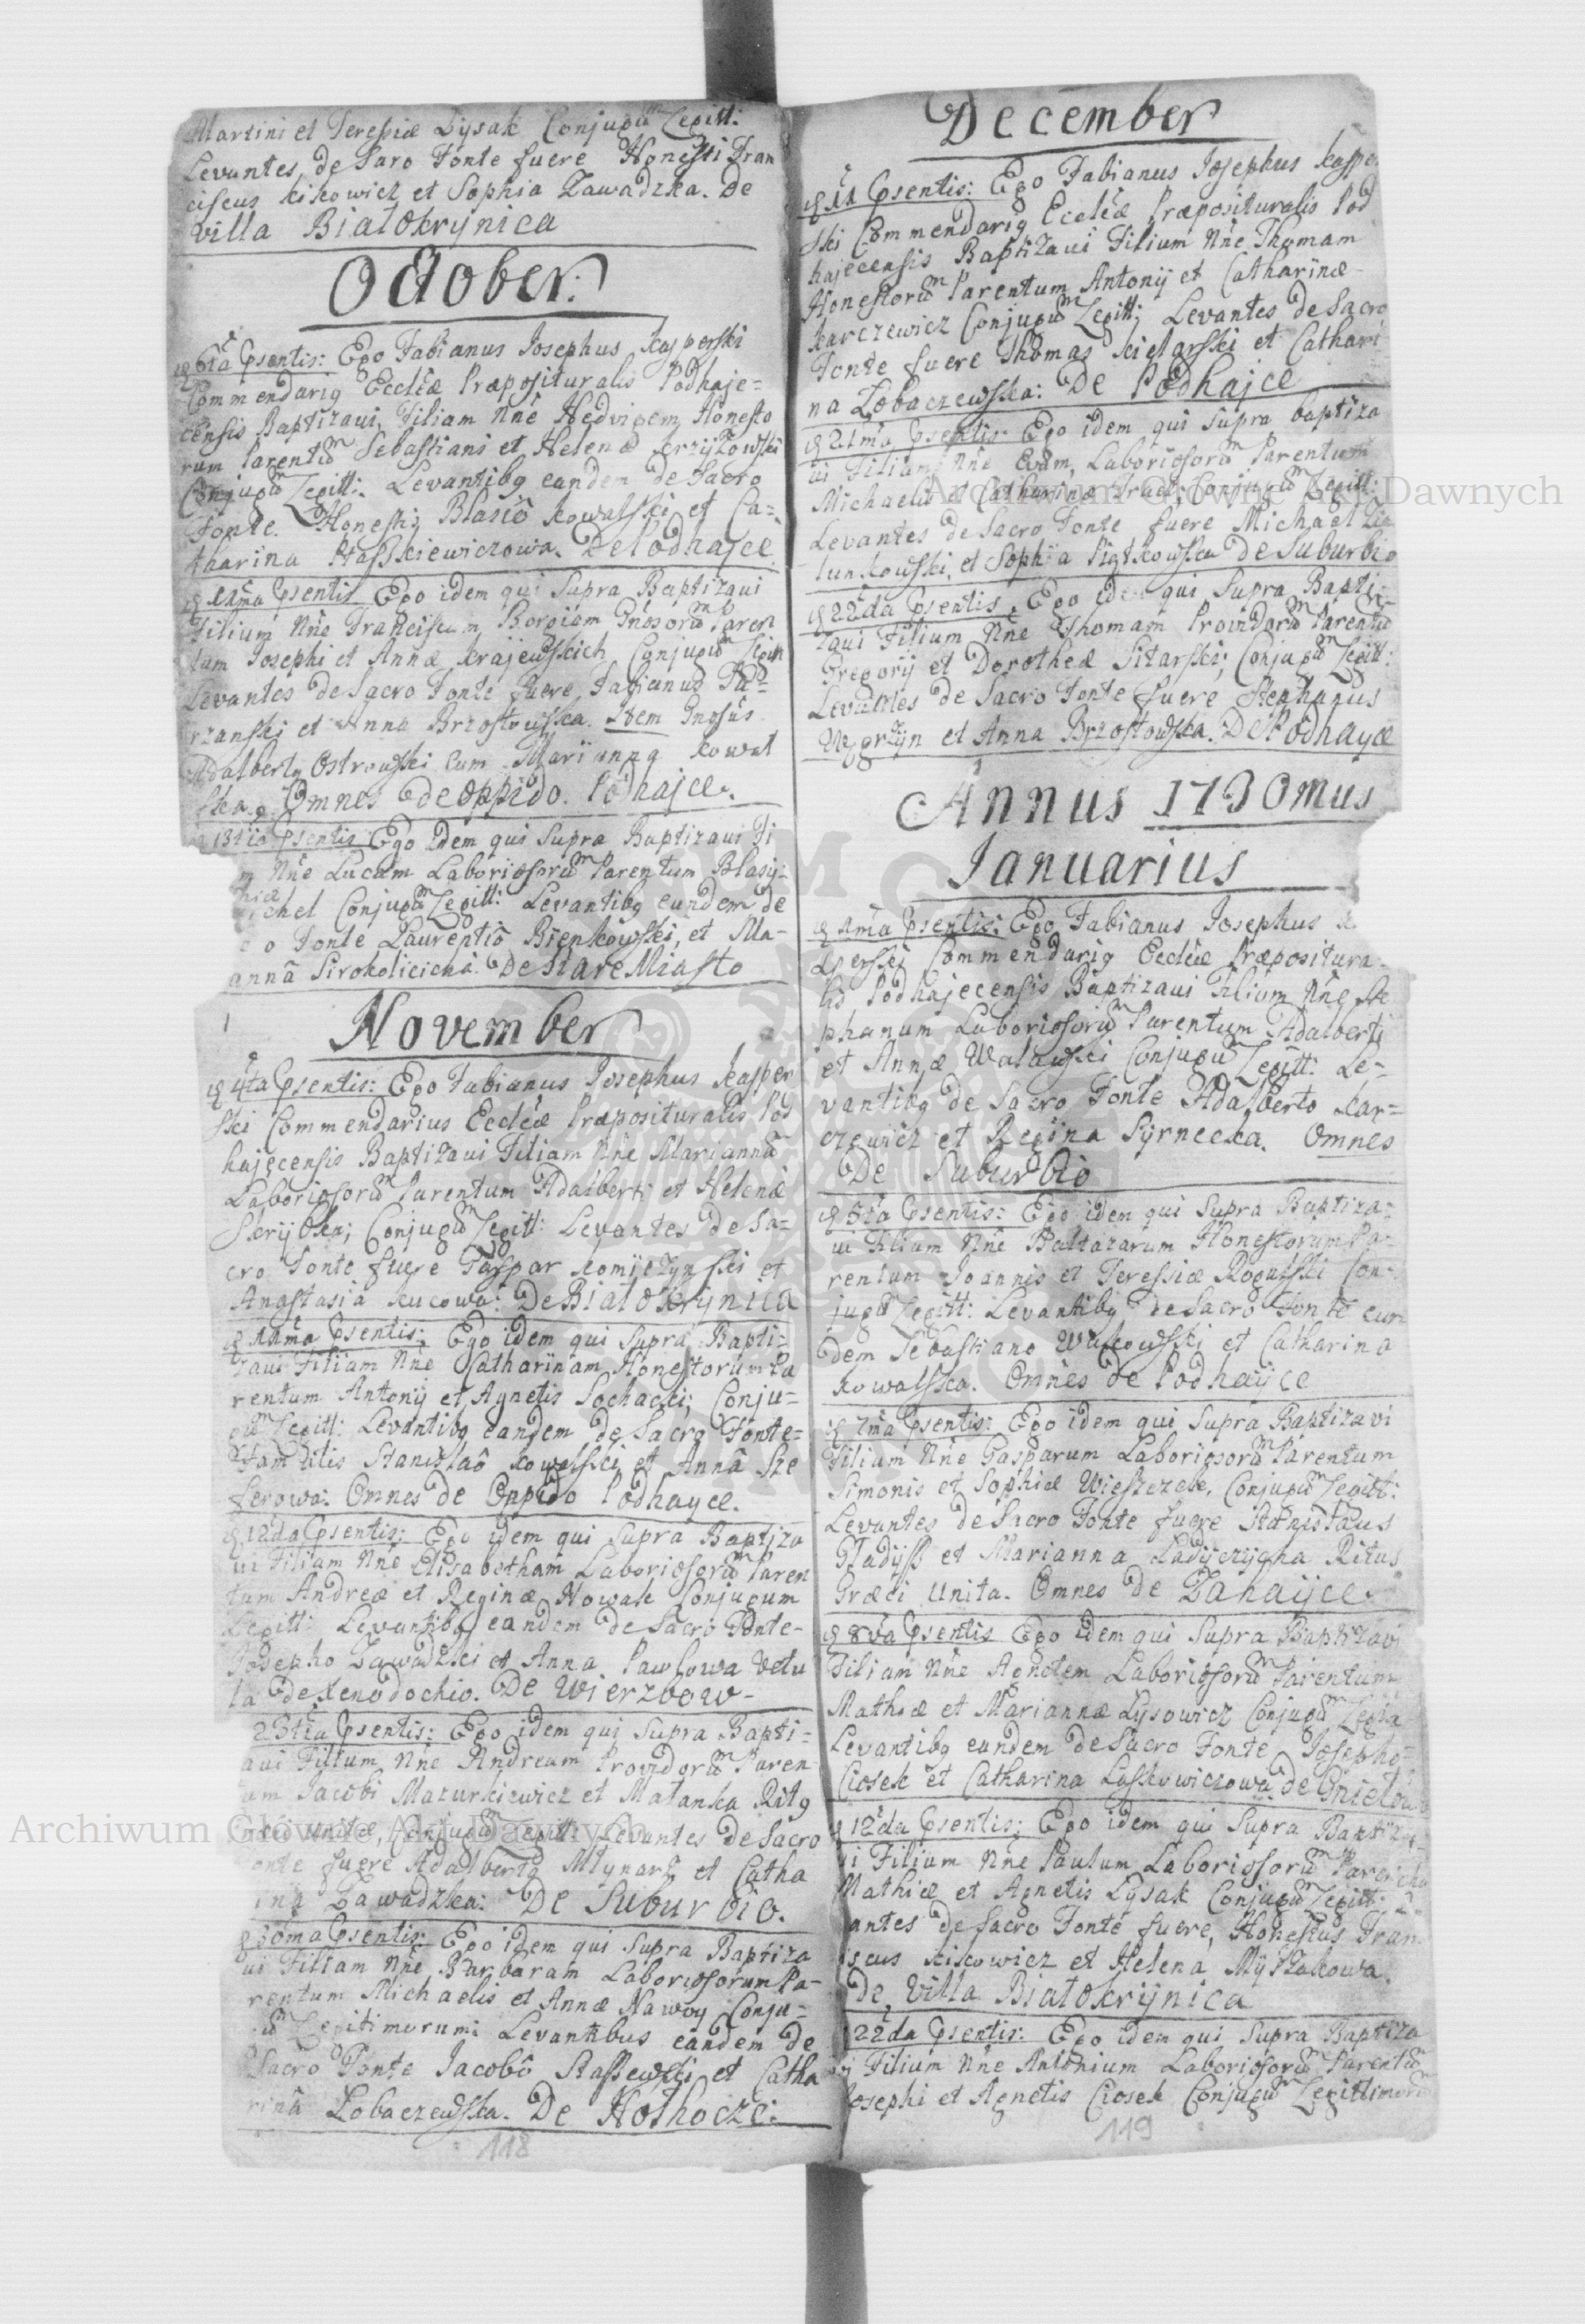 Martini et Teressiæ Lysak Conjugũm Legitt:
Levantes de Saro Fonte fuere Honesti Fran
ciscus Kiskowicz et Sophia Zawadzka. De
villa Białokrynica
October:
6ta Psentis: Ego Fabianus Josephus Kasperski
Commendarig Eccłeæ Præpositurałis Podhaje=
censis Baptizaui, Filiam Nñe Hedvigem Honesto
rum Parentũm Sebastiani et Helenæ Krzyżowski
Conjugũm Legitt: Levantibg eandem de Sacro
Fonte. Honestis Blasiô Kowalski et Ca=
tharina Ptasskiewiczowa. De Podhajce
11ma Psentis Ego idem qui Supra Baptizaui
Filium Nñe Franciscum Borgiam Gñosorũm Paren
tum Josephi et Annæ Krajewskich Conjugũm Legitt
Levantes de Sacro Fonte fuere, Fabianus Pa=
rzanski et Anna Brzostowska. Item Gnosus
Adalbertg Ostrowski cum Marijanna Kowal
ska. Omnes de oppido Podhajce.
13tia Psentis Ego idem qui Supra Baptizaui Fi
m Nñe Lucam Laboriosorũm Parentum Blasij
chel Conjugũm Legitt: Levantibg eundem de
o Fonte Laurentiô Bienkowski, et Ma-
annâ Sirokolicichâ. De Stare Miasto
November
4ta Psentis: Ego Fabianus Josephus Kasper
ski Commendarius Eccłeæ Præpositurałis Pod
hajecensis Baptizaui Filiam Nñe Mariannã
Laboriosorũm Parentum Adalberti et Helenæ
Skrijbka; Conjugũm Legitt: Levantes de Sa=
cro Fonte fuere Gaspar Komijczynski et
Anastasia Kucowa: De Białokrynica
11ma Psentis: Ego idem qui Supra Bapti=
zaui Filiam Nñe Catharinam Honestorum Pa
rentum Antonij et Agnetis Sochacki; Conju=
gũm Legitt: Levantibg eandem de Sacro Fonte=
Famatis Stanislaô Kowalski et Annâ Sze
ferowa: Omnes de Oppido Podhayce.
12da Psentis: Ego idem qui Supra Baptiza
ui Filiam Nñe Elisabetham Laboriosorũm Paren
tum Andreæ et Reginæ Nowak Conjugum
Legitt: Levantibg eandem de Sacro Fonte-
Josepho Zawadzki et Anna Pawlowa Vetu
la de Xenodochio. De Wierzbow-
23tia Psentis: Ego idem qui Supra Bapti=
aui Filium Nñe Andream Providorũm Paren
um Jacobi Mazurkiewicz et Matanka Ritg
ræci unitæ, Conjugũm Legitt: Levantes de Sacro
onte fuere Adalbertg Młynarz et Catha
ina Zawadzka: De Suburbio.
30ma Psentis: Ego idem qui Supra Baptiza
ui Filiam Nñe Barbaram Laboriosorum Pa-
rentum Michaelis et Annæ Nawoy Conju=
ũm Legitimorum: Levantibus eandem de
Sacro Fonte Jacobô Stassewski et Catha
rinâ Łobaczewska. De Hołhocze:
118
December
11 Psentis: Ego Fabianus Josephus Kasper
ski Commendarig Eccłeæ Præpositurałis Pod
hajecensis Baptizaui Filium Nñe Thomam
Honestorũm Parentum Antonij et Catharinæ
Karczewicz Conjugũm Legitt; Levantes de Sacro
Fonte fuere Thomas Kielarski et Cathari
na Łobaczewska: De Podhajce
21ma Psentis: Ego idem qui Supra baptiza
ui Filiam Nñe Evam, Laboriosorũm Parentum
Michaelis et Catharinæ Conjugũm Legitt:
Levantes de Sacro Fonte fuere Michael
lunkowski, et Sophia Piątkowska De Suburbio
22da Psentis, Ego idem qui Supra Bapti-
zaui Filium Nñe Thomam Providorũm Parentũm
Gregorij et Dorotheæ Sitarski; Conjugũm Legitt:
Levantes de Sacro Fonte fuere Stephanus
Węgrzyn et Anna Brzostowska. De Podhayce
Annus 1730mus
Januarius
1ma Psentis: Ego Fabianus Josephus K
asperski Commendarig Eccłeæ Præpositura-
lis Podhajecensis Baptizaui Filium Nñe Ste
phanum Laboriosorũm Parentum Adalberti
et Annæ Walawski Conjugũm Legitt: Le-
vantibg de Sacro Fonte Adalberto Kar=
czewicz et Regina Syrnecka. Omnes
De Suburbio
5ta Psentis: Ego idem qui Supra Baptiza=
ui Filium Nñe Baltazarum Honestorum Pa-
rentum Joannis et Teressiæ Rogulski Con-
jugũm Legitt: Levantibg de Sacro Fonte eun
dem Sebastiano Wałkowski et Catharina
Kowalska. Omnes de Podhayce
7ma Psentis: Ego idem qui Supra Baptizavi
Filium Nñe Gasparum Laboriosorũm Parentum
Simonis et Sophiæ Wieszczek, Conjugũm Legitt:
Levantes de Sacro Fonte fuere Stanisłaus
Gładijss et Marianna Ladijczijcha Ritus
Græci Unita. Omnes de Zahayce.
8va Psentis Ego idem qui Supra Baptizavi
Filiam Nñe Agnetem Laboriosorũm Parentum
Mathiæ et Mariannæ Lysowicz Conjugũm Legitt
Levantibg eandem de Sacro Fonte Josepho=
Ciosek et Catharina Laskowiczowa de Gniełow
12da Psentis: Ego idem qui Supra Baptiza-
i Filium Nñe Paulum Laboriosorũm Parentũ
Mathiæ et Agnetis Lysak Conjugũm Legitt: L
antes de Sacro Fonte fuere, Honestus Fran
iscus Kiskowicz et Helena Myszakowa.
de Villa Białokrynica
22da Psentis: Ego idem qui Supra Baptiza
i Filium Nñe Antonium Laboriosorũm Parentũm
Josephi et Agnetis Ciosek Conjugũm Legittimorũ
119
Archiwum Główne Akt Dawnych
Archiwum Główne Akt Dawnych